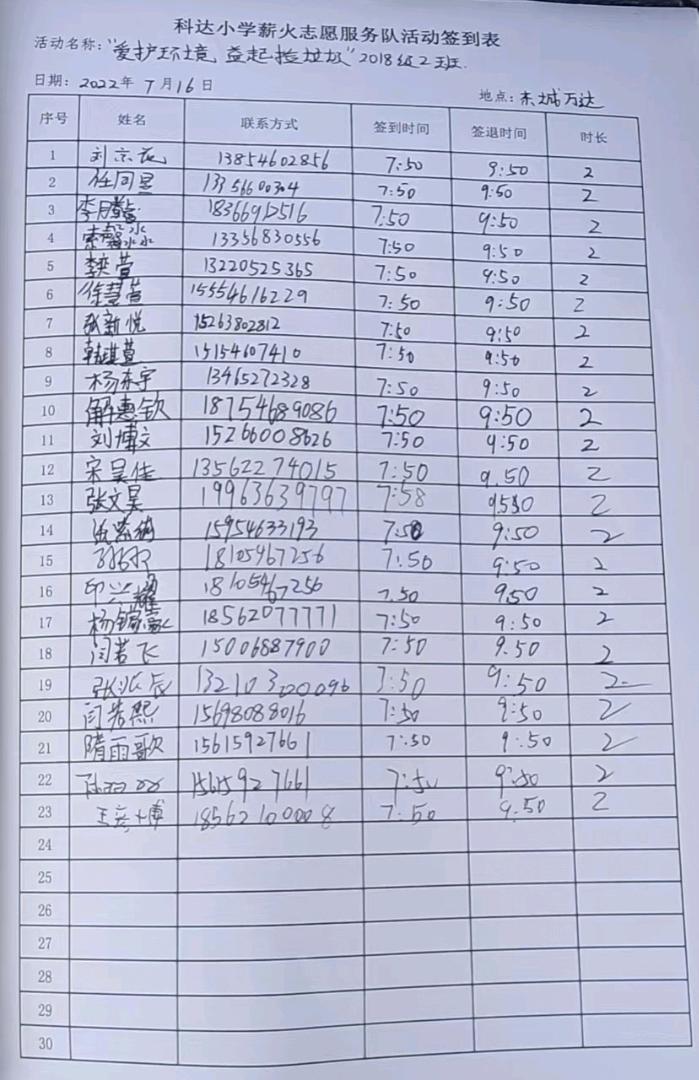 科达小学薪火志愿服务队活动签到表
活动名称："爱护环境，益起捡垃圾"2018级2班.
日期：2022年 7月16日 地点：东城万达
序号 姓名 联系方式 签到时间 签退时间 时长
1 刘京 13854602856 7:50 9:50 2
2 任同昱 13356600304 7:50 9:50 2
3 李月馨 18366912516 7:50 9:50 2
4 索馨冰 13356830556 7:50 9:50 2
5 萱 13220525365 7:50 9:50 2
6 徐慧萱 15554616229 7:50 9:50 2
7 张新悦 15263802812 7:50 9:50 2
8 韩萱 15154607410 7:50 9:50 2
9 杨东宇 13465272328 7:50 9:50 2
10 解惠钦 18754689086 7:50 9:50 2
11 刘博文 15266008626 7:50 9:50 2
12 宋昊佳 13562274015 7:50 9.50 2
13 张文昊 19963639797 7:58 2
14 15954633193 7:50 9:50 2
15 18105467256 7:50 9:50 2
16 印兴耀 18105467256 7.50 9.50 2
17 杨 18562077771 7:50 9:50 2
18 闫若飞 15006887900 7:50 9.50 2
19 张 7:50 9:50 2
20 闫若熙 15698088016 7:50 9:50 2
21 隋雨歌 15615927661 7:50 9:50 2
22 15615927661 7:50 9:50 2
23 王彦博 18562100008 7:50 9:50 2
24
25
26
27
28
29
30